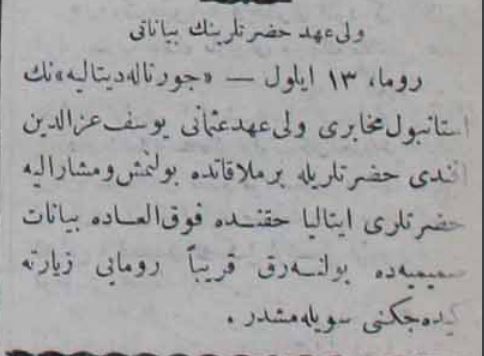 ولی عهد حضرتلرینك بیاناتی
روما، ۱۳ ایلول — «جورناله دیتالیه»نك
استانبول مخابری ولی عهد عثمانی یوسف عزالدین
افندی حضرتلریله بر ملاقاتده بولنمش و مشارالیه
حضرتلری ایتالیا حقنـده فوق العـاده بیانات
صمیمیه ده بولنـه رق قریباً رومایی زیارته
كیده جكنی سویله مشدر .